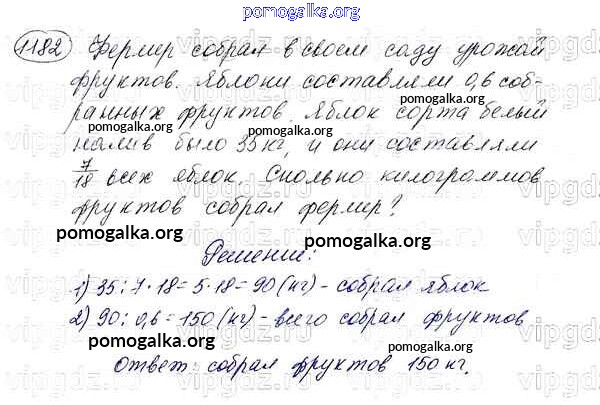 pomogalka.org
1182 Фермер собрал в своем саду урожай
фруктов. Яблоки составляли 0,6 соб-
ранных фруктов. Яблок сорта белый
pomogalka.org pomogalka.org
налив было 35 кг, и они составляли
7/18 всех яблок. Сколько килограммов
pomogalka.org
фруктов собрал фермер?
pomogalka.org
Решение:
pomogalka.org
1) 35:7·18=5·18=90(кг)-собрал яблок
2) 90:0,6=150(кг)-всего собрал фруктов
pomogalka.org
pomogalka.org
Ответ: собрал фруктов 150 кг.